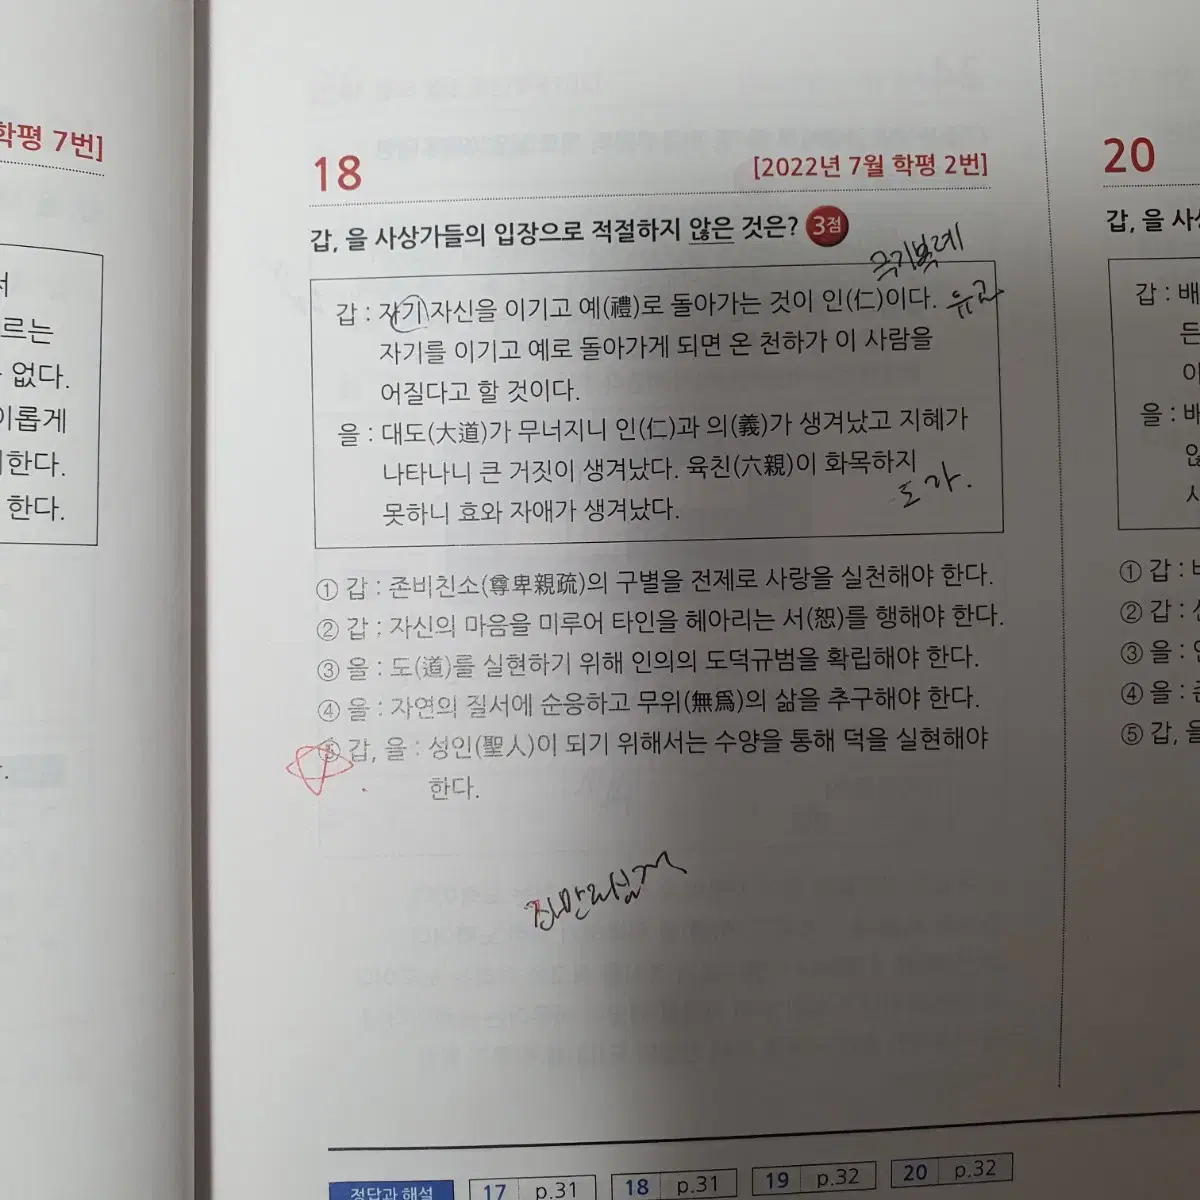 학평 7번]
르는
없다.
이롭게
한다.
한다.
18
[2022년 7월 학평 2번]
갑, 을 사상가들의 입장으로 적절하지 않은 것은? 3점
극기복례
갑 : 자기 자신을 이기고 예(禮)로 돌아가는 것이 인(仁)이다. 유교
자기를 이기고 예로 돌아가게 되면 온 천하가 이 사람을
어질다고 할 것이다.
을 : 대도(大道)가 무너지니 인(仁)과 의(義)가 생겨났고 지혜가
나타나니 큰 거짓이 생겨났다. 육친(六親)이 화목하지
못하니 효와 자애가 생겨났다.
도가.
① 갑 : 존비친소(尊卑親疏)의 구별을 전제로 사랑을 실천해야 한다.
② 갑 : 자신의 마음을 미루어 타인을 헤아리는 서(恕)를 행해야 한다.
③ 을 : 도(道)를 실현하기 위해 인의의 도덕규범을 확립해야 한다.
④ 을 : 자연의 질서에 순응하고 무위(無爲)의 삶을 추구해야 한다.
⑤ 갑, 을 : 성인(聖人)이 되기 위해서는 수양을 통해 덕을 실현해야
한다.
정답과 해설
17 p.31
18 p.31
19 p.32
20 p.32
20
갑, 을 사상
갑 : 배
든
을 : 배
않
사
① 갑 : 비
② 갑 :
③ 을 : 인
④ 을 : 존
⑤ 갑, 을